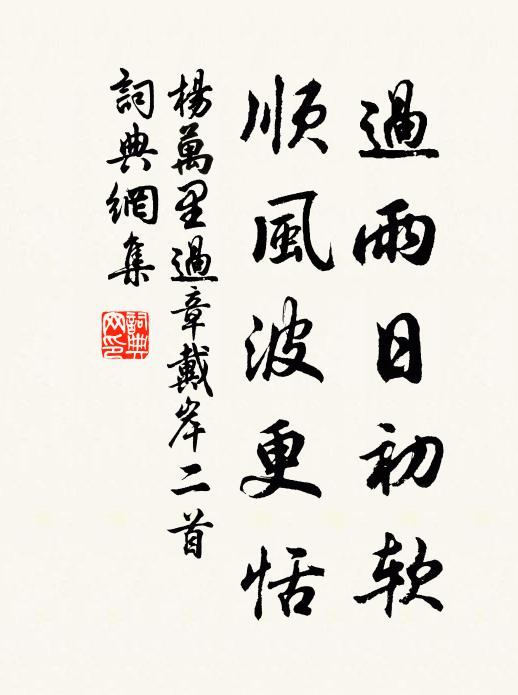 過雨日初軟
順風波更恬
楊萬里過章戴岸二首
詞典網集
詞典网印